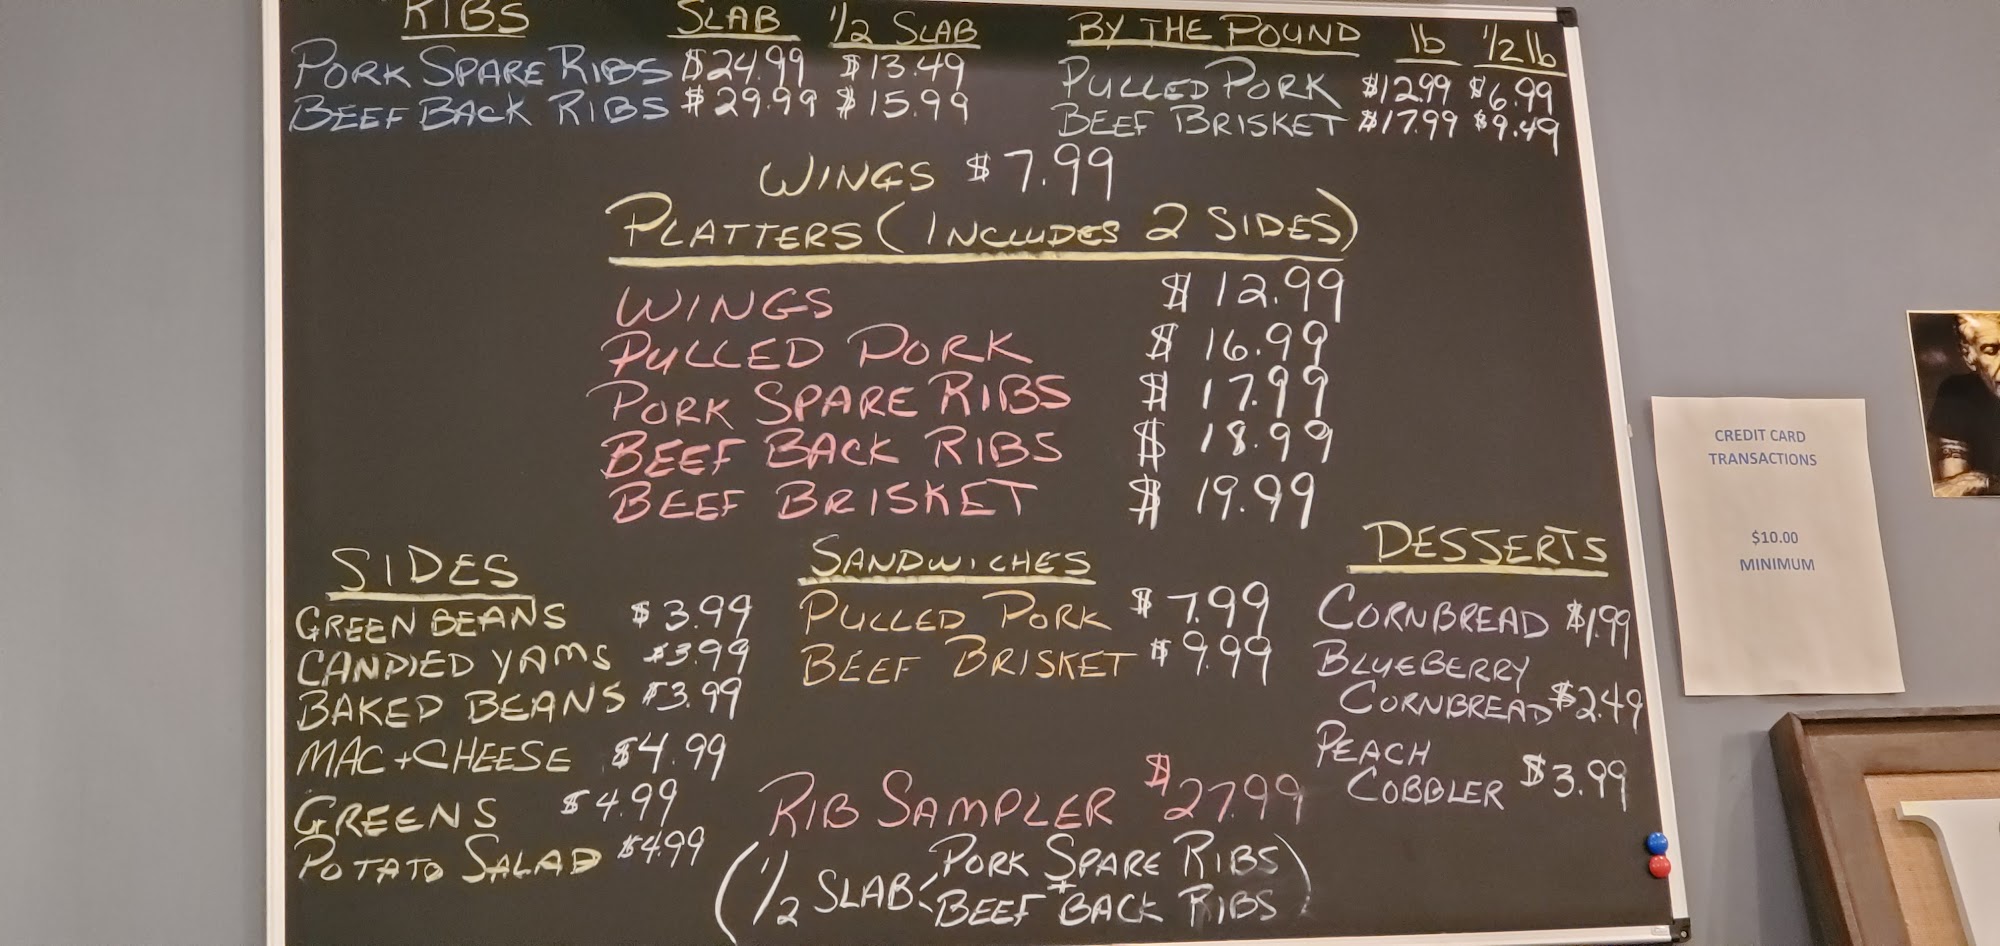 RIBS SLAB 1/2 SLAB
PORK SPARE RIBS $24.99 $13.49
BEEF BACK RIBS $29.99 $15.99
BY THE POUND lb 1/2 lb
PULLED PORK $12.99 $6.99
BEEF BRISKET $17.99 $9.49
WINGS $7.99
PLATTERS (INCLUDES 2 SIDES)
WINGS $12.99
PULLED PORK $16.99
PORK SPARE RIBS $17.99
BEEF BACK RIBS $18.99
BEEF BRISKET $19.99
SIDES
GREEN BEANS $3.99
CANDIED YAMS $3.99
BAKED BEANS $3.99
MAC + CHEESE $4.99
GREENS $4.99
POTATO SALAD $4.99
SANDWICHES
PULLED PORK $7.99
BEEF BRISKET $9.99
RIB SAMPLER $27.99
(1/2 SLAB < PORK SPARE RIBS
+
BEEF BACK RIBS)
DESSERTS
CORNBREAD $1.99
BLUEBERRY
CORNBREAD $2.49
PEACH
COBBLER $3.99
CREDIT CARD
TRANSACTIONS
$10.00
MINIMUM